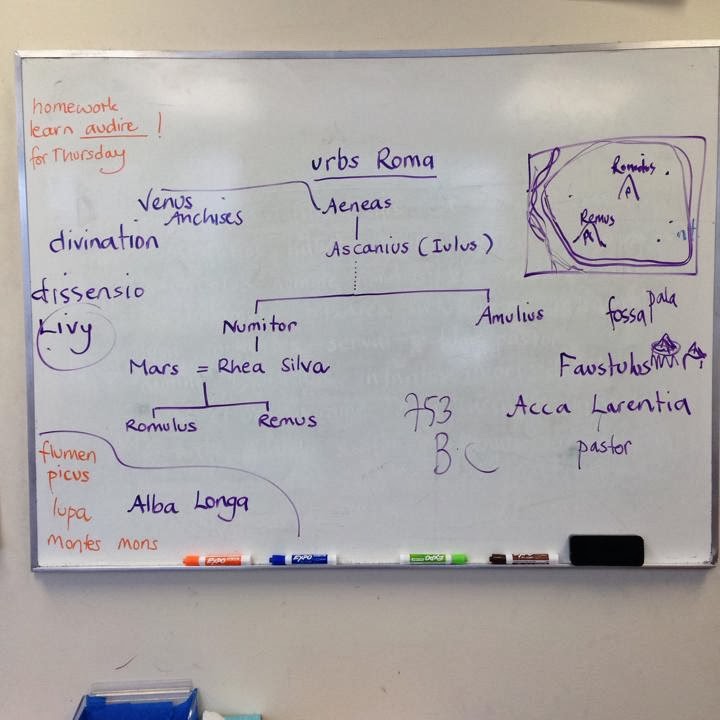 homework
learn audire !
for Thursday
urbs Roma
Venus
Anchises
Aeneas
Ascanius (Iulus)
divination
dissensio
Livy
Numitor
Amulius
Mars = Rhea Silva
Romulus
Remus
753
B.C
Romulus
Remus
fossa pala
Faustulus
Acca Larentia
pastor
flumen
picus
lupa
montes mons
Alba Longa
EXPO
EXPO
EXPO
EXPO